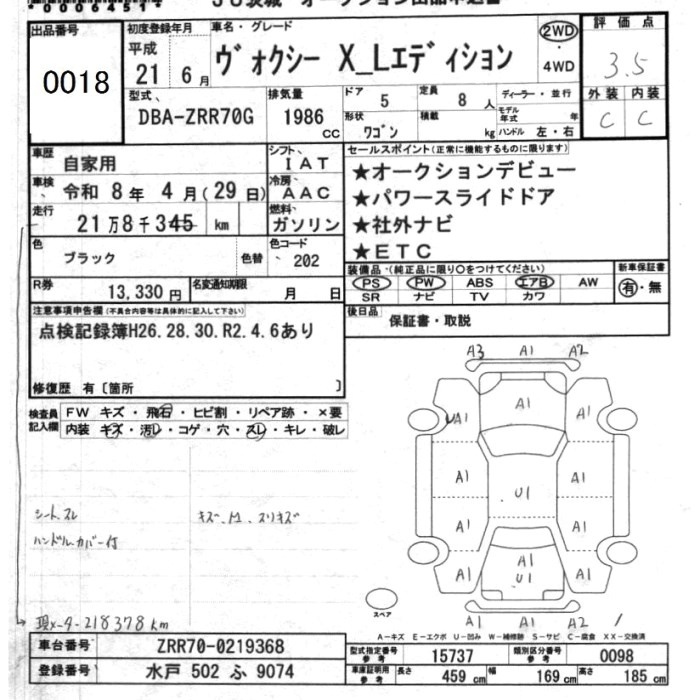 *00064514*
JU茨城 オークション出品申込書
出品番号
0018
初度登録年月 車名・グレード
平成 21 6月
ヴォクシー X_Lエディション
2WD・4WD
評価点
3.5
外装 内装
C C
型式、 排気量 ドア 定員 ディーラー・並行
DBA-ZRR70G 1986 CC 5 8 人
形状 積載 モデル年式 年
ワゴン kg ハンドル 左・右
車歴 自家用 シフト、 IAT
車検、 令和 8年 4月(29日) 冷房、 AAC
走行 21万8千345 km 燃料、 ガソリン
色 ブラック 色替 色コード、 202
R券 13,330円 名変通知期限 月 日
セールスポイント(正常に機能するものに限ります)
★オークションデビュー
★パワースライドドア
★社外ナビ
★ETC
装備品、(純正品に限り○をつけてください) 新車保証書
PS PW ABS エアB AW 有・無
SR ナビ TV カワ
後日品 保証書・取説
注意事項申告欄(不具合内容等は具体的に記入して下さい)
点検記録簿H26.28.30.R2.4.6あり
修復歴 有〔箇所 〕
検査員記入欄
FW キズ・飛石・ヒビ割・リペア跡・×要
内装 キズ・汚レ・コゲ・穴・スレ・キレ・破レ
シートスレ
ハンドルカバー付
キズ、凹、スリキズ
現メーター218378km
A3 A1 A2
A1
A1 A1
A1 A1
U1
A1 A1
A1
A1 U1 A1
A1 A1 A2
スペア
A-キズ E-エクボ U-凹み W-補修跡 S-サビ C-腐食 XX-交換済
車台番号 ZRR70-0219368
登録番号 水戸 502 ふ 9074
型式指定番号 参考 15737 類別区分番号 参考 0098
車庫証明用 参考 長さ 459 cm 幅 169 cm 高さ 185 cm